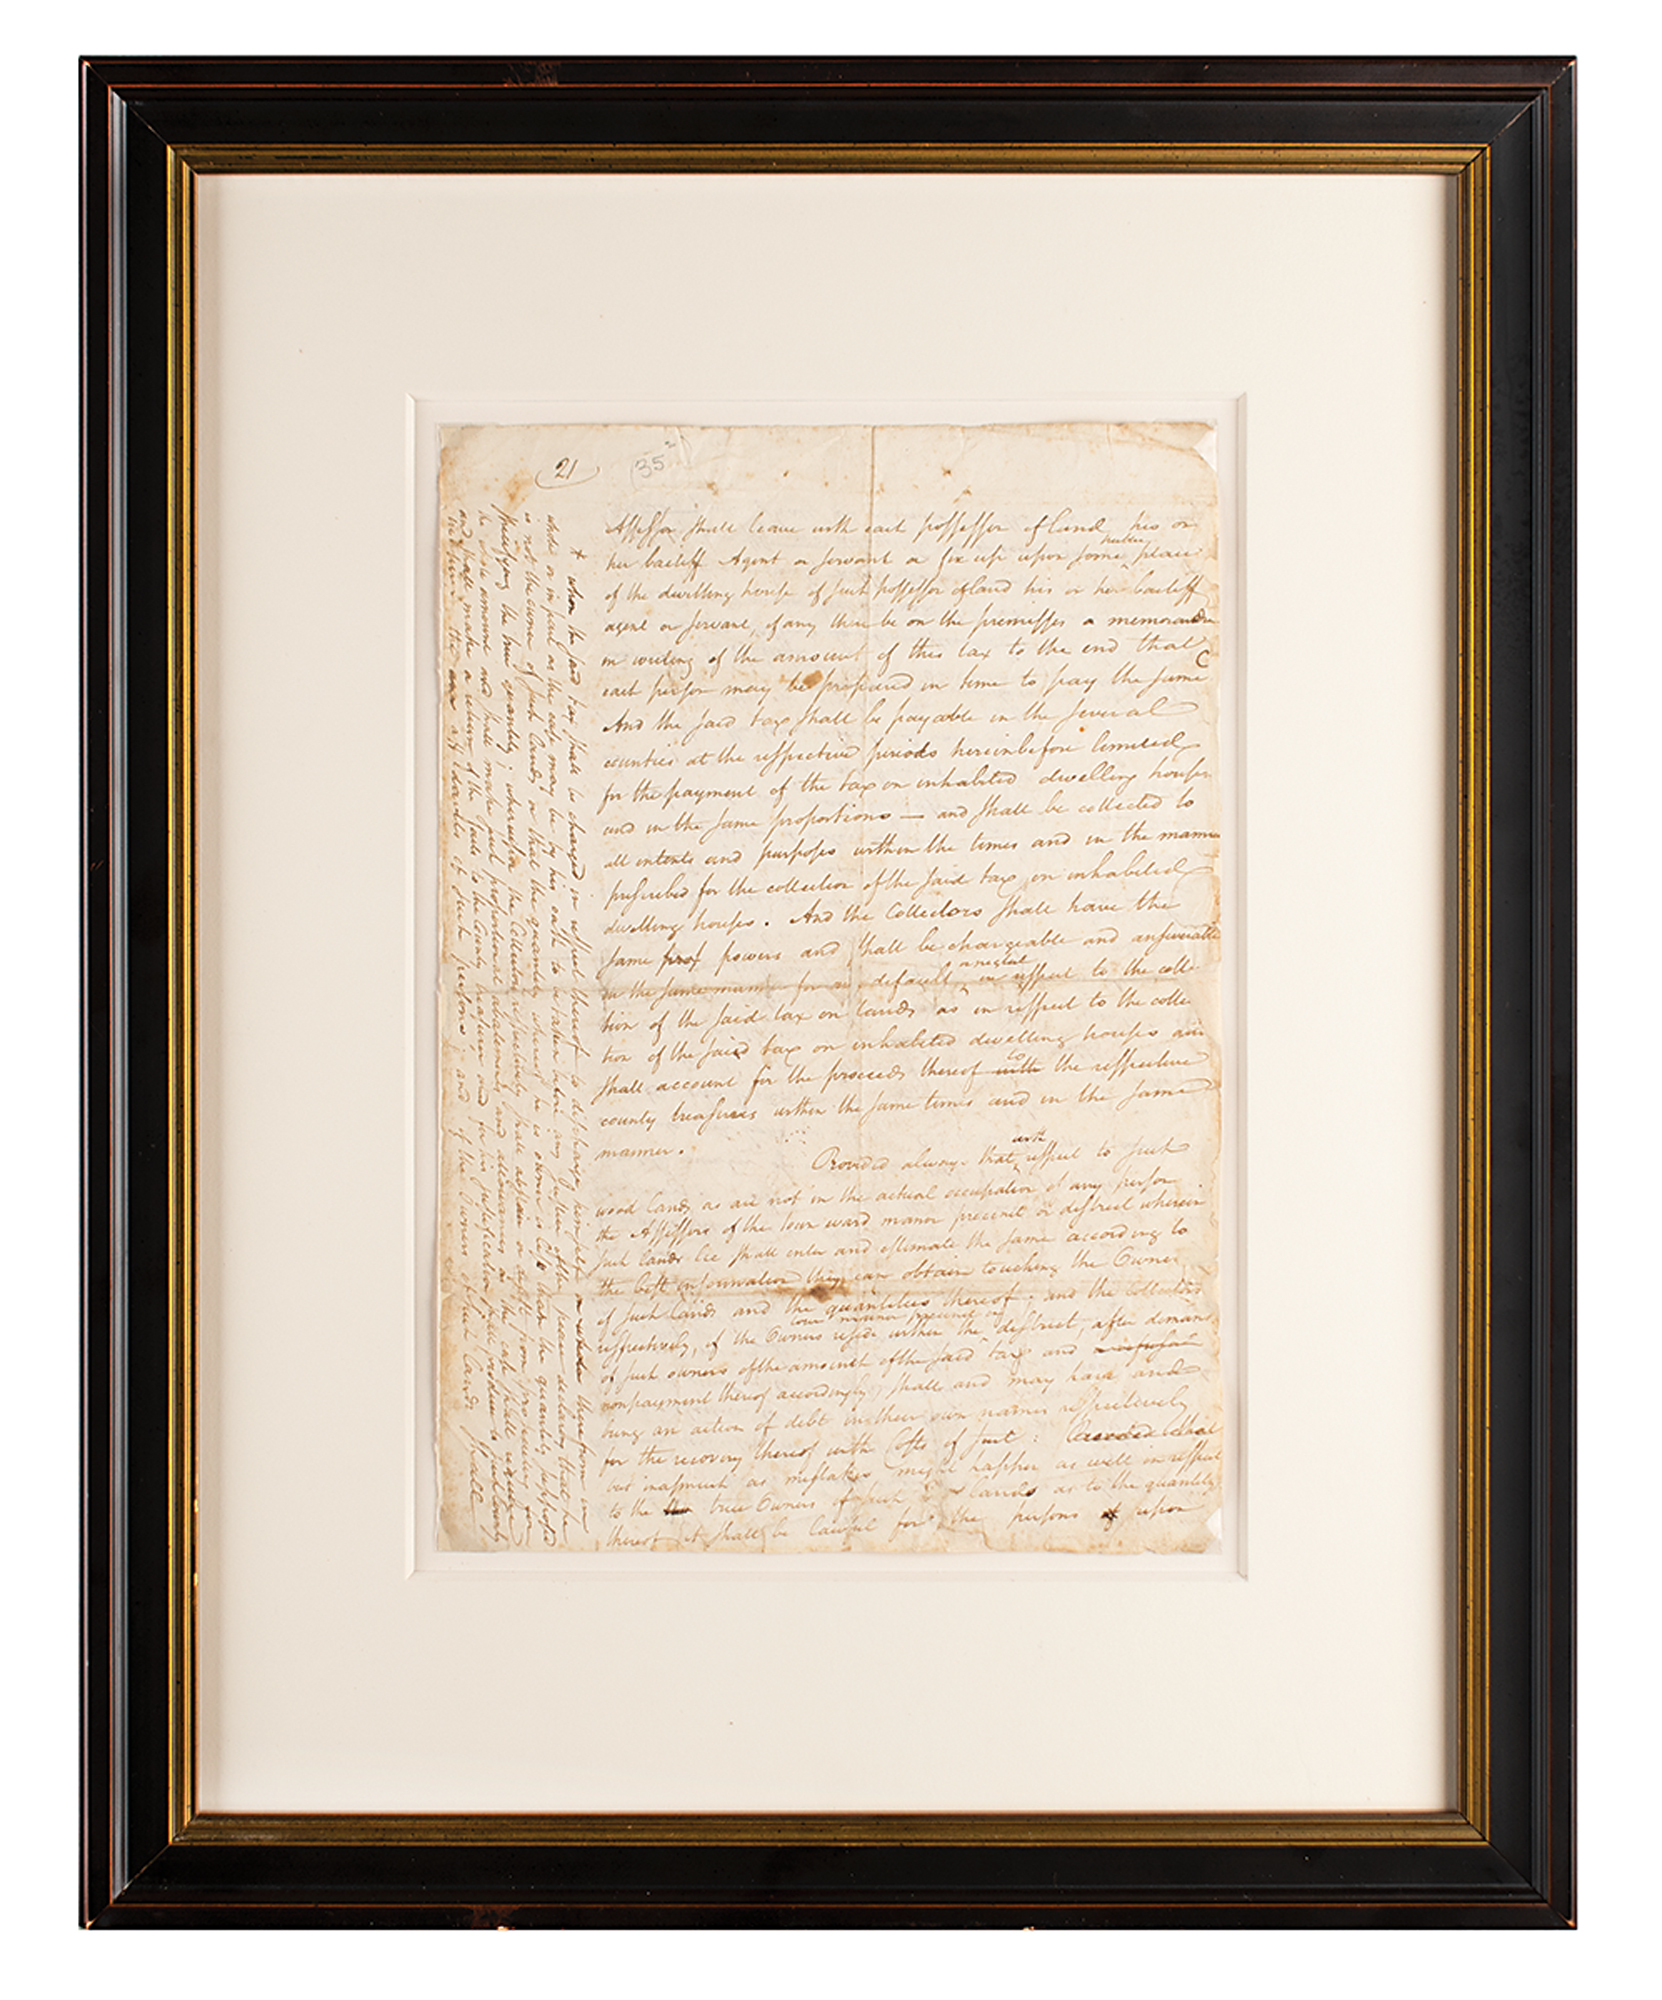 21
35
Assessor shall leave with each possessor of land his or
her bailiff Agent or servant or fix up upon some publick place
of the dwelling house of such possessor of land his or her bailiff
agent or servant, if any there be on the premisses a memorandum
in writing of the amount of this tax to the end that
each person may be prepared in time to pay the same
And the said tax shall be payable in the several
counties at the respective periods hereinbefore limited
for the payment of the tax on inhabited dwelling houses
and in the same proportions — and shall be collected to
all intents and purposes within the times and in the manner
prescribed for the collection of the said tax on inhabited
dwelling houses. And the Collectors shall have the
same prof powers and shall be chargeable and answerable
in the same manner for any default or neglect in respect to the collec
tion of the said tax on lands as in respect to the collec
tion of the said tax on inhabited dwelling houses and
shall account for the proceeds thereof with to the respective
county treasurers within the same times and in the same
manner.
Provided always that with respect to such
wood lands as are not in the actual occupation of any person
the Assessors of the town ward manor precinct or district wherein
such lands lie shall enter and estimate the same according to
the best information they can obtain touching the Owners
of such lands and the quantities thereof: and the Collectors
respectively, if the Owners reside within the town manor precinct or district, after demand
of such owners of the amount of the said tax and
nonpayment thereof accordingly shall and may have and
bring an action of debt in their own names respectively
for the recovery thereof with Costs of suit: Provided that
but inasmuch as mistakes might happen as well in respect
to the true Owners of such lands as to the quantity
thereof it shall be lawful for the persons upon
* whom the said tax shall be charged in respect thereof to discharge himself therefrom in
whole or in part as the case may be by his oath to be taken before any Justice of the peace declaring that he
is not the owner of such lands or that the quantity whereof he is owner is less than the quantity supposed
specifying the true quantity; whereupon the Collectors respectively shall abstain or desist from proceeding for
the whole amount and shall make such proportional abatements and allowances as the case shall require
and shall make a return of the oath to the County treasurer and for his justification
of such persons; and if the Owners of such lands shall